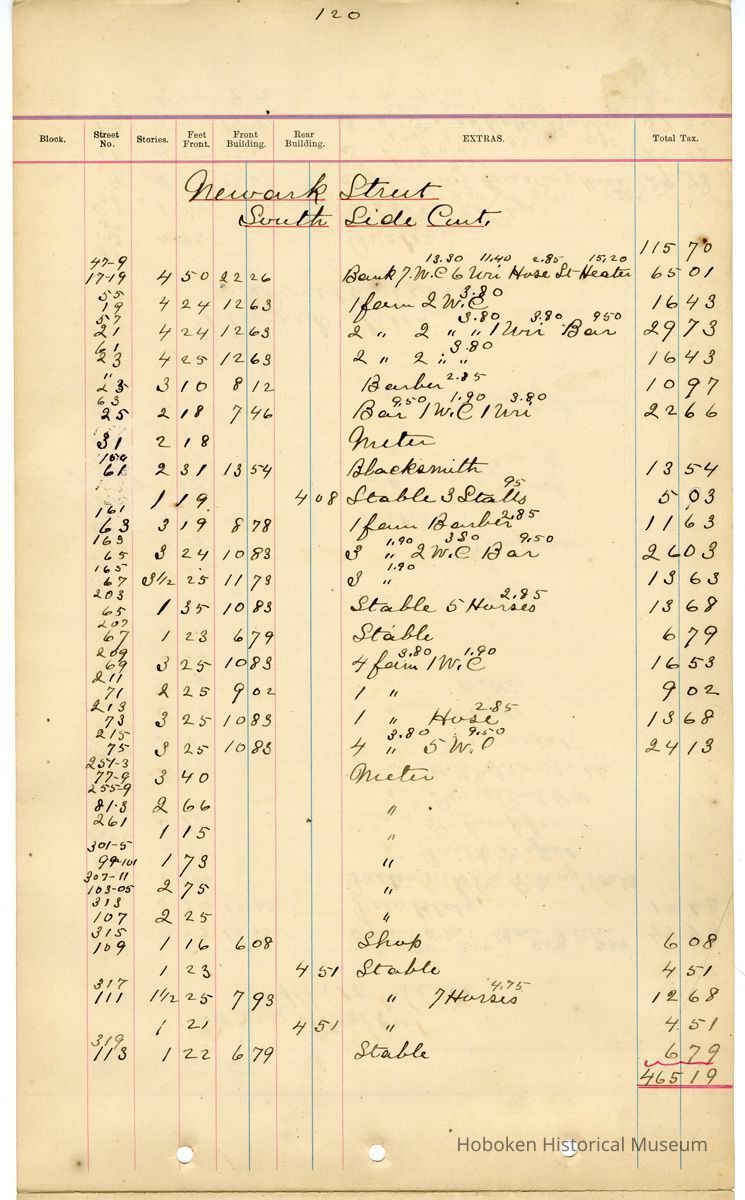 120
Block. Street No. Stories. Feet Front. Front Building. Rear Building. EXTRAS. Total Tax.
Newark Street
South Side Cont.
115 70
47-9 13.30 11.40 2.85 15.20
17-19 4 50 22 26 Bank 7 W.C 6 Wri Hose St Heater 65 01
55 3.80
19 4 24 12 63 1 fam 2 W.C 16 43
57 3.80 3.80 9 50
21 4 24 12 63 2 " 2 " " 1 Wri Bar 29 73
61 3.80
23 4 25 12 63 2 " 2 " " 16 43
" 2.85
23 3 10 8 12 Barber 10 97
63 9.50 1.90 3.80
25 2 18 7 46 Bar 1 W.C 1 Wri 22 66
31 2 18 Meter
159
61 2 31 13 54 Blacksmith 13 54
95
1 19 4 08 Stable 3 Stalls 5 03
161 2.85
63 3 19 8 78 1 fam Barber 11 63
163 1.90 3 80 9.50
65 3 24 10 83 3 " 2 W.C Bar 26 03
165 1.90
67 3 1/2 25 11 73 3 " 13 63
203 2.85
65 1 35 10 83 Stable 5 Horses 13 68
207
67 1 23 6 79 Stable 6 79
209 3.80 1.90
69 3 25 10 83 4 fam 1 W.C 16 53
211
71 2 25 9 02 1 " 9 02
213 2.85
73 3 25 10 83 1 " Hose 13 68
215 3.80 9.50
75 3 25 10 83 4 " 5 W.C 24 13
251-3
77-9 3 40 Meter
255-9
81-3 2 66 "
261
1 15 "
301-5
99-101 1 73 "
307-11
103-05 2 75 "
313
107 2 25 "
315
109 1 16 6 08 Shop 6 08
1 23 4 51 Stable 4 51
317 4.75
111 1 1/2 25 7 93 " 7 Horses 12 68
1 21 4 51 " 4 51
319
113 1 22 6 79 Stable 6 79
465 19
Hoboken Historical Museum